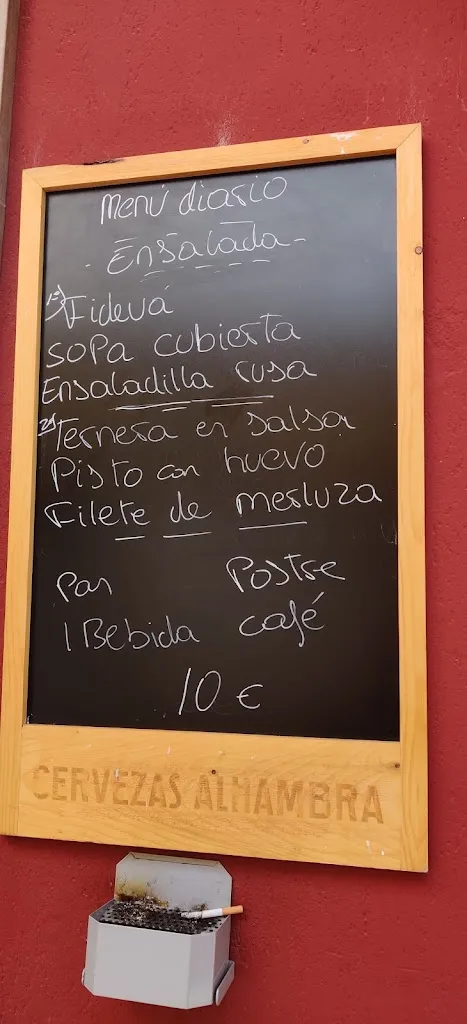 Menú diario
- Ensalada -
1º) Fidevá
Sopa cubierta
Ensaladilla rusa
2º) Ternera en salsa
Pisto con huevo
Filete de merluza
Pan Postre
1 Bebida café
10 €
CERVEZAS ALHAMBRA